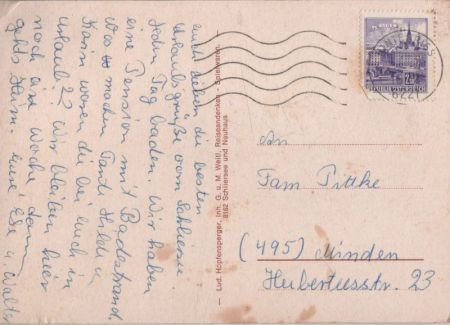 Euch lieben die besten
Urlaubsgrüße vom Schliersee.
Jeden Tag baden. Wir haben
eine Pension mit Badestrand.
Was machen
Karin waren die bei euch in
Urlaub? Wir bleiben hier
noch eine Woche dann
gehts Heim. Eure Else u. Walter
Lud. Hopfensperger, Inh. G. u. M. Weitl, Reiseandenken - Spielwaren
8162 Schliersee und Neuhaus
REPUBLIK ÖSTERREICH
An
Fam. Pittke
(495) Minden
Hubertusstr. 23